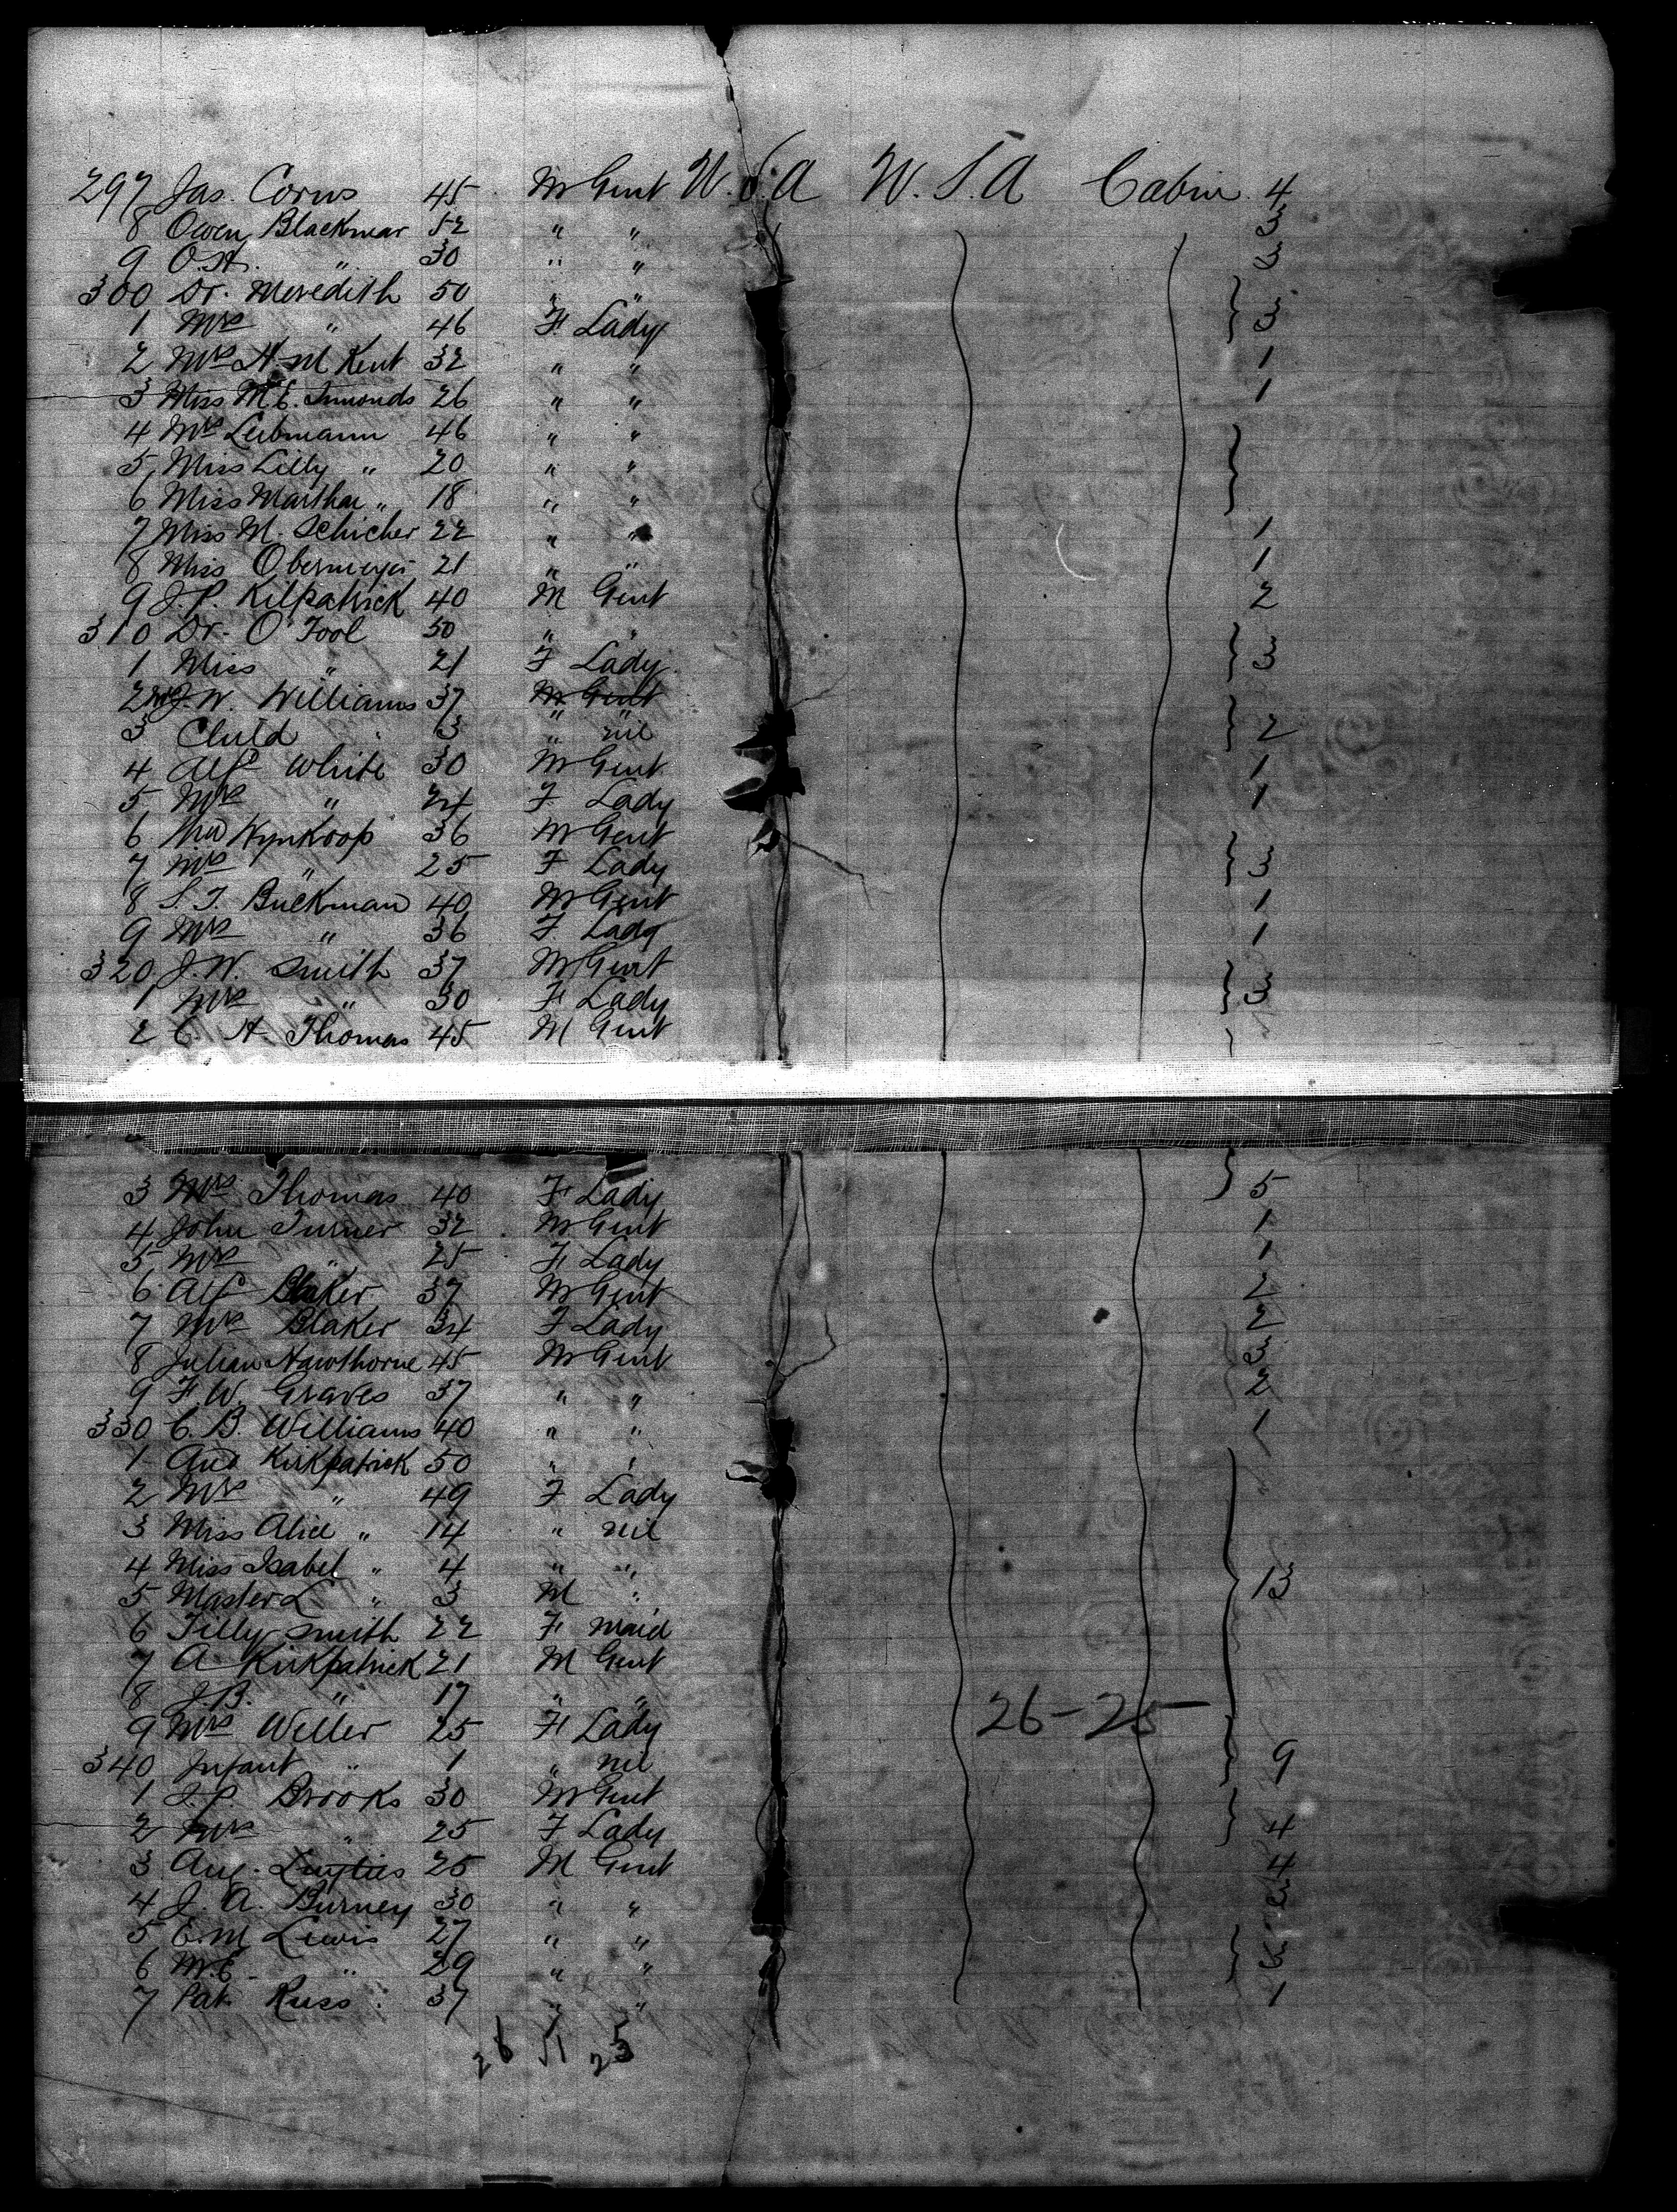 297 Jas. Corns 45 M Gent U.S.A U.S.A Cabin 4
8 Owen Blackmar 52 " " 3
9 O.H. " 30 " " 3
300 Dr. Meredith 50 " "
1 Mrs " 46 F Lady 3
2 Mrs H M Kent 32 " " 1
3 Miss M.E. 26 " " 1
4 Mrs Leibmann 46 " "
5 Miss Lilly " 20 " "
6 Miss Martha " 18 " "
7 Miss M. Schicher 22 " " 1
8 Miss Obermeyer 21 " " 1
9 J.P. Kilpatrick 40 M Gent 2
310 Dr. O'Tool 50 " "
1 Miss " 21 F Lady 3
2 J.W. Williams 37 M Gent " "
3 Child " 3 " nil 2
4 Alf White 30 M Gent 1
5 Mrs " 24 F Lady 1
6 Wynkoop 36 M Gent
7 Mrs " 25 F Lady 3
8 S.T. Buckman 40 M Gent 1
9 Mrs " 36 F Lady 1
320 J.W. Smith 37 M Gent
1 Mrs " 30 F Lady 3
2 C H Thomas 45 M Gent
3 Mrs Thomas 40 F Lady 5
4 John Turner 32 M Gent 1
5 Mrs " 25 F Lady 1
6 Alf Blaker 37 M Gent 2
7 Mrs Blaker 34 F Lady 2
8 Julian Hawthorne 45 M Gent 3
9 F.W. Graves 37 " " 2
330 C.B. Williams 40 " " 1
1 And Kirkpatrick 50 " "
2 Mrs " 49 F Lady
3 Miss Alice " 14 " nil
4 Miss Isabel " 4 " "
5 Master L " 3 M " 13
6 Tilly Smith 22 F maid
7 A Kirkpatrick 21 M Gent
8 J.B. " 17 " "
9 Mrs Weller 25 F Lady 26-25
340 Infant " 1 " nil 9
1 J.P. Brooks 30 M Gent
2 Mrs " 25 F Lady 4
3 Aug. Luyties 25 M Gent 4
4 J.A. Burney 30 " " 3
5 E.M Lewis 27 " "
6 M.E. " 29 " " 3
7 Pat Russ 37 " " 1
26 51 25